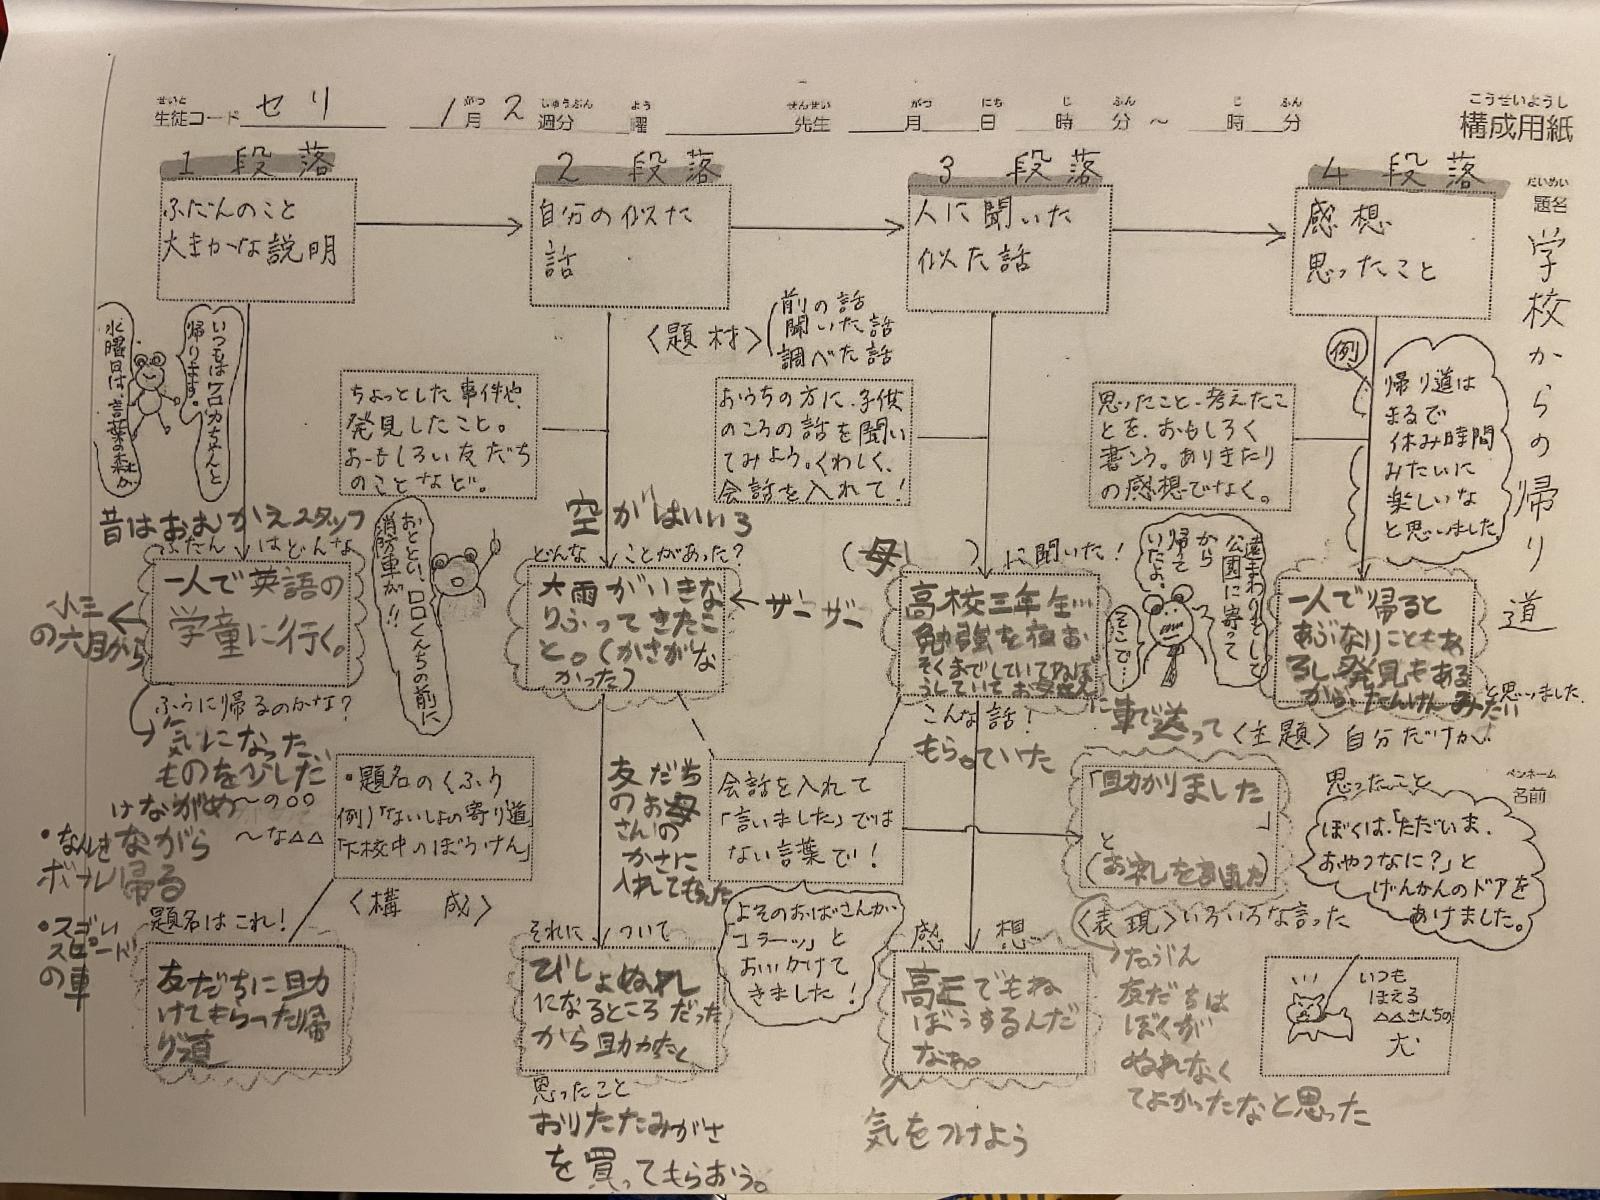 こうせいようし
構成用紙
せいと
生徒コード セリ
がつ しゅうぶん よう
1月 2週分 曜
せんせい がつ にち じ ふん じ ふん
先生 月 日 時 分 ~ 時 分
だいめい
題名
学校からの帰り道
ペンネーム
名前
1 段落
ふだんのこと
大まかな説明
いつもはワロカちゃんと
帰ります。
水曜日は、言葉の森か
昔はおむかえスタッフ
ふだんはどんな
一人で英語の
学童に行く。
小三
の六月から
ふうに帰るのかな?
気になった
ものを少しだ
けながめ
~の○○
~な△△
ながら
帰る
・スゴい
スピード
の車
・題名のくふう
例)「ないしょの寄り道」
「下校中のぼうけん」
〈構 成〉
題名はこれ!
友だちに助
けてもらった帰
り道
2 段落
自分の似た
話
〈題 材〉
前の話
聞いた話
調べた話
ちょっとした事件や、
発見したこと。
おもしろい友だち
のことなど。
おととい、ロロくんちの前に
消防車が!!
空がはいいろ
どんな ことがあった?
大雨がいきな
りふってきたこ
と。(かさがな
かった)
ザーザー
友だち
のお母
さんの
かさに
入れてもらった
それに ついて
びしょぬれ
になるところだった
から助かった
思ったこと
おりたたみがさ
を買ってもらおう。
3 段落
人に聞いた
似た話
おうちの方に、子供
のころの話を聞い
てみよう。くわしく、
会話を入れて!
(母 )に聞いた!
高校三年生…
勉強を夜お
そくまでしていてねぼ
うしていてお母さん
に車で送って
もらっていた
こんな話!
遠まわりをして
公園に寄って
から
帰って
いたよ。
そこで…
会話を入れて
「言いました」では
ない言葉で!
よそのおばさんが
「コラーッ」と
おいかけて
きました!
感 想
高三でもね
ぼうするんだ
なあ。
気をつけよう
4 段落
感想
思ったこと
例
帰り道は
まるで
休み時間
みたいに
楽しいな
と思いました
思ったこと、考えたこ
とを、おもしろく
書こう。ありきたり
の感想でなく。
一人で帰ると
あぶないこともあ
るし、発見もある
から、たんけんみたい
と思いました。
〈主題〉自分だけが、
思ったこと
「助かりました
」
と
(お礼を言いました)
〈表現〉いろいろな言った
たぶん
友だちは
ぼくが
ぬれなく
てよかったなと思った
ぼくは、「ただいま、
おやつなに?」と
げんかんのドアを
あけました。
いつも
ほえる
△△さんちの
犬